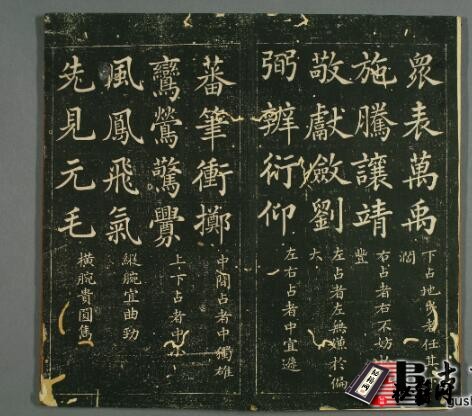 衆表萬禹
下占地步者任其
闊
施騰讓靖
右占者右不妨
豐
敬獻斂劉
左占者左無嫌於偏
大
弼辨衍仰
左右占者中宜遜
蕃筆衝擲
中間占者中獨雄
鸞鶯驚釁
上下占者中小
風鳳飛氣
縱腕宜曲勁
先見元毛
橫腕貴圓雋